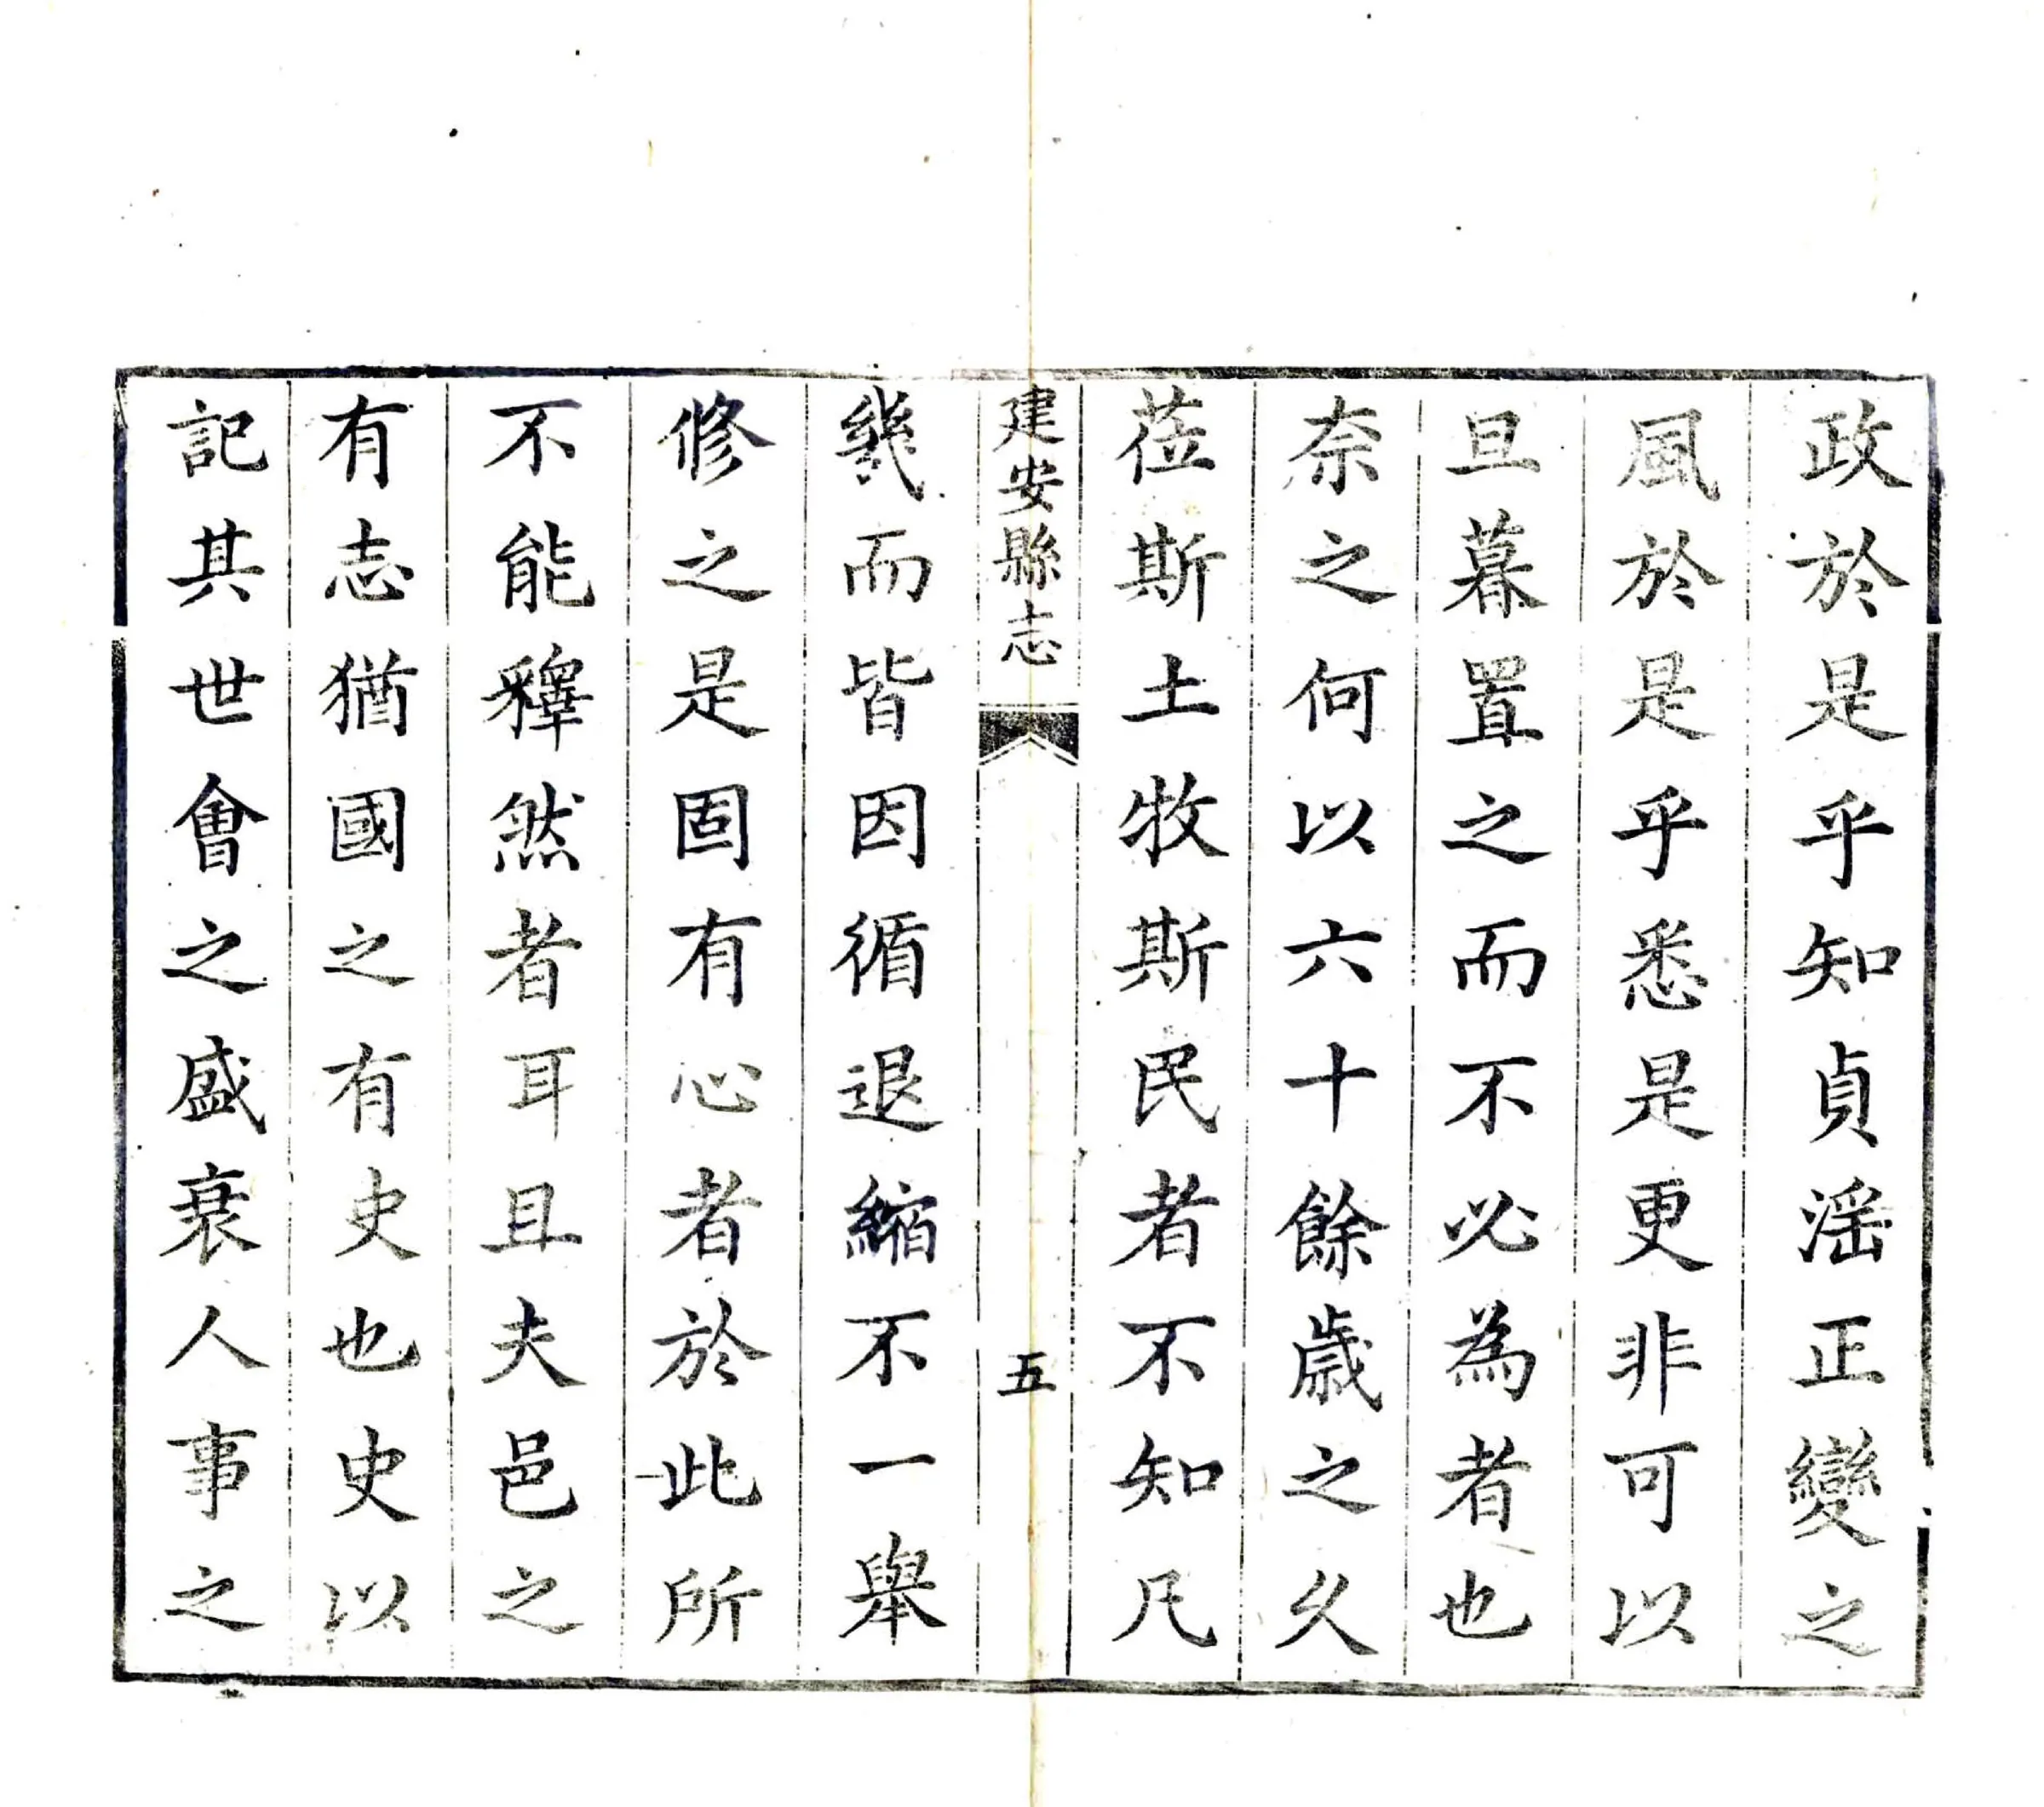 政於是乎知貞淫正變之
風於是乎悉是更非可以
旦暮置之而不必為者也
奈之何以六十餘歲之久
蒞斯土牧斯民者不知凡
建安縣志
五
幾而皆因循退縮不一舉
修之是固有心者於此所
不能釋然者耳且夫邑之
有志猶國之有史也史以
記其世會之盛衰人事之